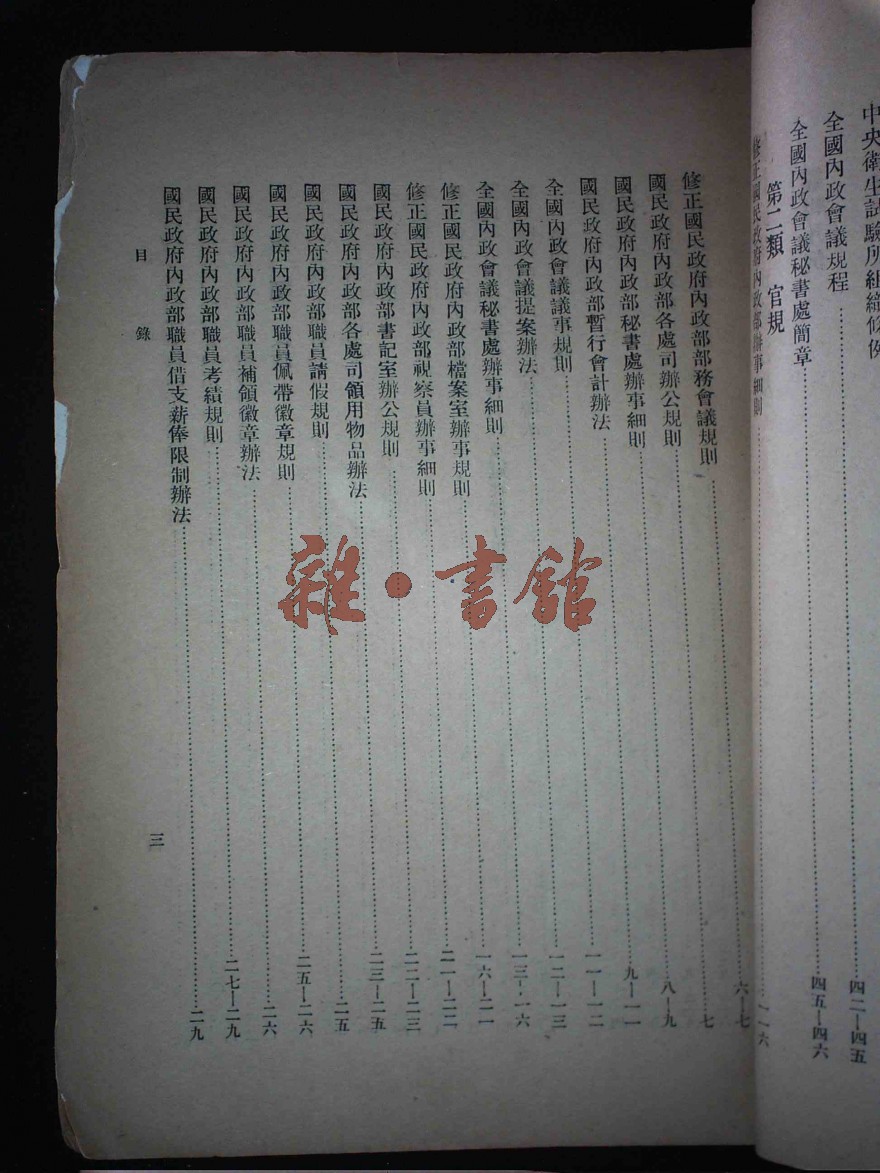 中央衛生試驗所組織條例
全國內政會議規程……四二—四五
全國內政會議秘書處簡章……四五—四六
第二類 官規
修正國民政府內政部辦事細則……一—六
修正國民政府內政部部務會議規則……六—七
國民政府內政部各處司辦公規則……七
國民政府內政部秘書處辦事細則……八—九
國民政府內政部暫行會計辦法……九—一一
全國內政會議議事規則……一一—一二
全國內政會議提案辦法……一二—一三
全國內政會議秘書處辦事細則……一三—一六
修正國民政府內政部檔案室辦事規則……一六—二一
修正國民政府內政部視察員辦事細則……二一—二二
國民政府內政部書記室辦公規則……二二—二三
國民政府內政部各處司領用物品辦法……二三—二五
國民政府內政部職員請假規則……二五
國民政府內政部職員佩帶徽章規則……二五—二六
國民政府內政部職員補領徽章辦法……二六
國民政府內政部職員考績規則……二七—二九
國民政府內政部職員借支薪俸限制辦法……二九
目 錄
三
雜·書館